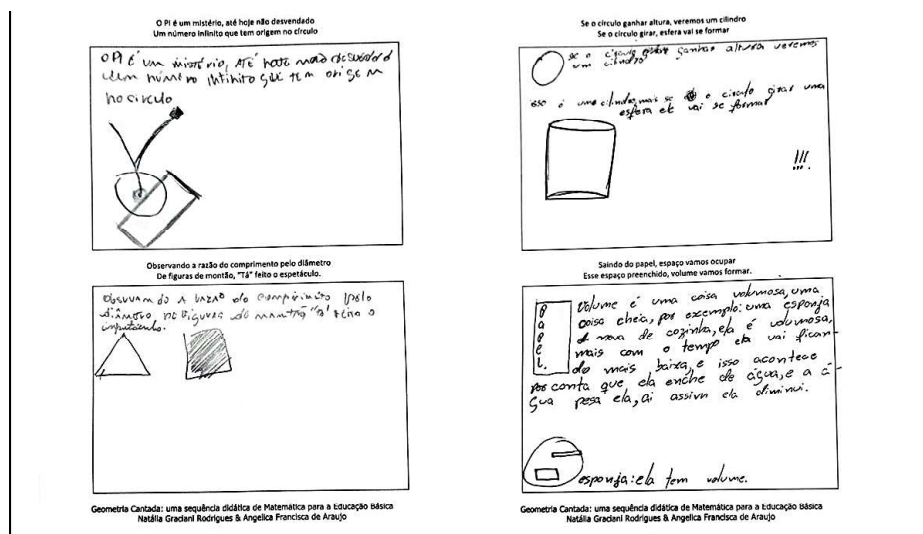 O PI é um mistério, até hoje não desvendado
Um número infinito que tem origem no círculo
O PI é um mistério, ATÉ hoje não desvendado
um número infinito que tem origem
no circulo
Observando a razão do comprimento pelo diâmetro
De figuras de montão, "Tá" feito o espetáculo.
do comprimento pelo
diâmetro
Geometria Cantada: uma sequência didática de Matemática para a Educação Básica
Natália Graciani Rodrigues & Angelica Francisca de Araujo
Se o círculo ganhar altura, veremos um cilindro
Se o círculo girar, esfera vai se formar
se o circulo ganhar altura veremos
um cilindro
isso é uma cilindro, mais se o circulo girar uma
esfera el vai se formar
!!!
Saindo do papel, espaço vamos ocupar
Esse espaço preenchido, volume vamos formar.
Papel.
Volume é uma coisa volumosa, uma
coisa cheia, por exemplo: uma esponja
nova de cozinha, ela é volumosa,
mais com o tempo ela vai fican-
do mais baixa, e isso acontece
por conta que ela enche de água, e a á-
gua pesa ela, ai assim ela diminui.
esponja: ela tem volume.
Geometria Cantada: uma sequência didática de Matemática para a Educação Básica
Natália Graciani Rodrigues & Angelica Francisca de Araujo